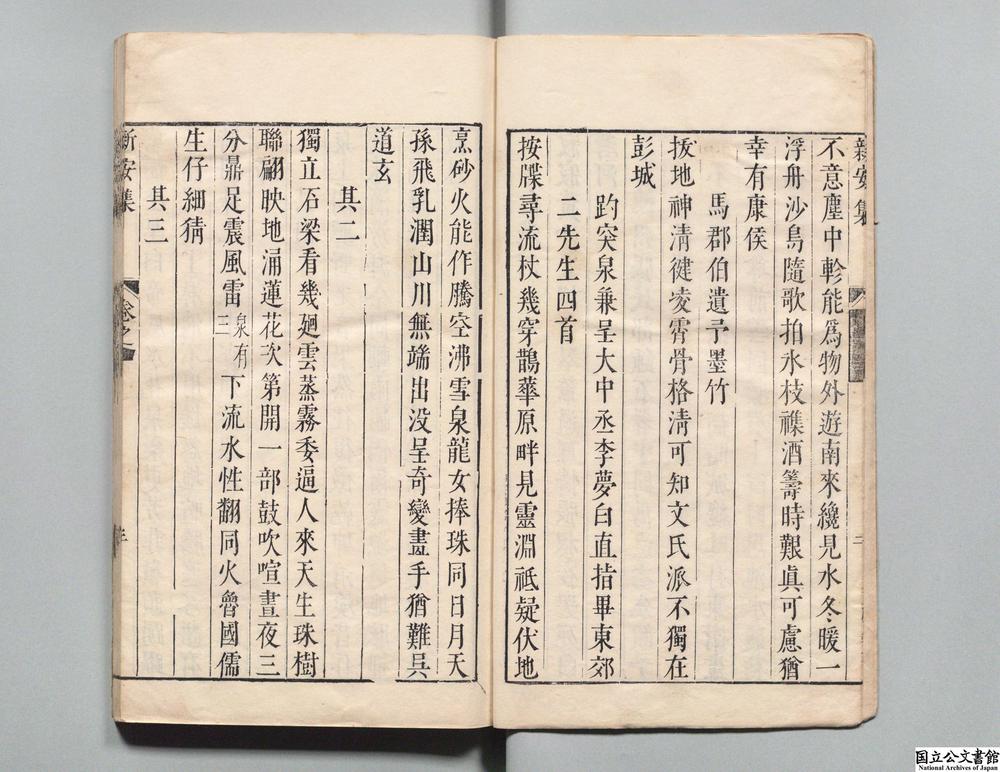 新安集
三
不意塵中軫能爲物外遊南來纔見水冬暖一
浮舟沙鳥隨歌拍水枝襍酒籌時艱眞可慮猶
幸有康侯
馬郡伯遺予墨竹
拔地神清健凌霄骨格清可知文氏派不獨在
彭城
趵突泉兼呈大中丞李夢白直指畢東郊
二先生四首
按牒尋流杖幾穿鵲華原畔見靈淵祗疑伏地
烹砂火能作騰空沸雪泉龍女捧珠同日月天
孫飛乳潤山川無端出没呈奇變畫手猶難吳
道玄
其二
獨立石梁看幾廻雲蒸霧委逼人來天生珠樹
聯翩映地涌蓮花次第開一部鼓吹喧晝夜三
分鼎足震風雷泉有三下流水性翻同火魯國儒
生仔細猜
其三
新安集
卷之
三
国立公文書館
National Archives of Japan